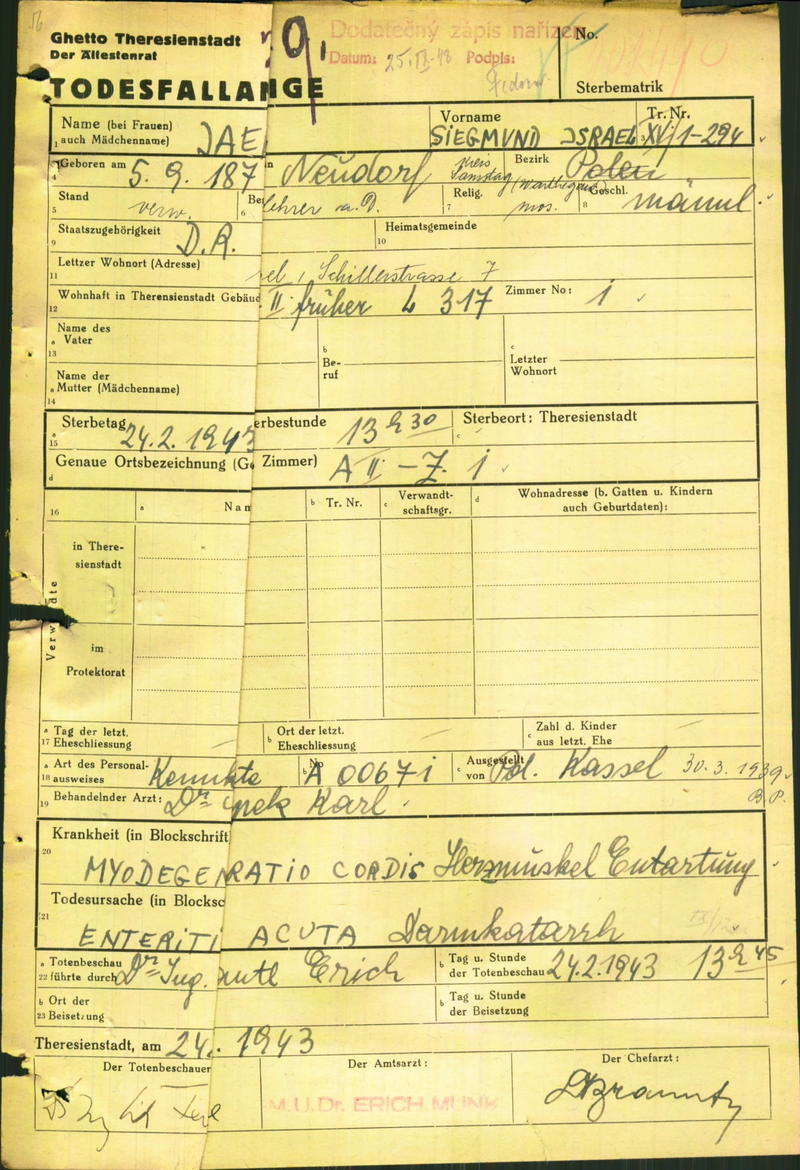 Ghetto Theresienstadt
Der Ältestenrat
TODESFALLAN GE
9.
Dodatečný zápis nařízen
Datum: 25. III. 48 Podpis:
No.
Sterbematrik
Name (bei Frauen) auch Mädchenname) JAE
Vorname SIEGMUND ISRAEL
Tr. Nr. XV/1-294
Geboren am 5. 9. 187 in Neudorf Kreis Samstag (Warthegau) Bezirk Polen
Stand verw. Be lehrer a. D. Relig. mos. Geschl. männl.
Staatszugehörigkeit D.R. Heimatsgemeinde
Lettzer Wohnort (Adresse) sel, Schillerstrasse 7
Wohnhaft in Therensienstadt Gebäud II früher L 317 Zimmer No: 1
Name des Vater
Be-ruf
Letzter Wohnort
Name der Mutter (Mädchenname)
Sterbetag 24.2.1943 erbestunde 13 h 30 Sterbeort: Theresienstadt
Genaue Ortsbezeichnung (Ge Zimmer) A II - Z. 1
Nam Tr. Nr. Verwandt-schaftsgr. Wohnadresse (b. Gatten u. Kindern auch Geburtdaten):
Verw dte
in There-sienstadt
im Protektorat
Tag der letzt. Eheschliessung Ort der letzt. Eheschliessung Zahl d. Kinder aus letzt. Ehe
Art des Personal-ausweises Kennkte No A 00671 Ausgestellt von Pol. Kassel 30.3.1939. B.P.
Behandelnder Arzt: Dr. Karl
Krankheit (in Blockschrift
MYODEGENRATIO CORDIS Herzmuskel Entartung
Todesursache (in Blocksc
ENTERITI ACUTA Darmkatarrh
Totenbeschau führte durch Dr Ing. Erich Tag u. Stunde der Totenbeschau 24.2.1943 13 h 45
Ort der Beisetzung Tag u. Stunde der Beisetzung
Theresienstadt, am 24. 1943
Der Totenbeschauer Der Amtsarzt: Der Chefarzt:
M.U.Dr. ERICH MUNK